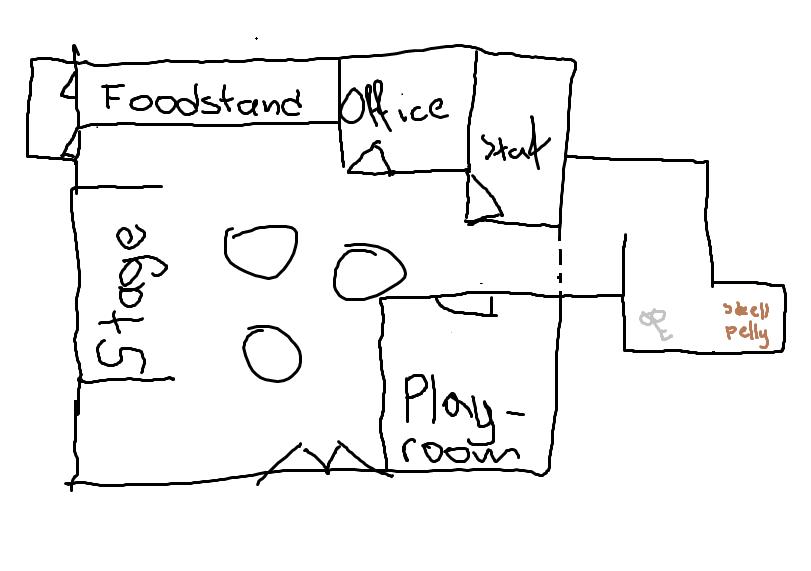 Foodstand
Office
Staf
Stage
Play-
room
skell
pelly